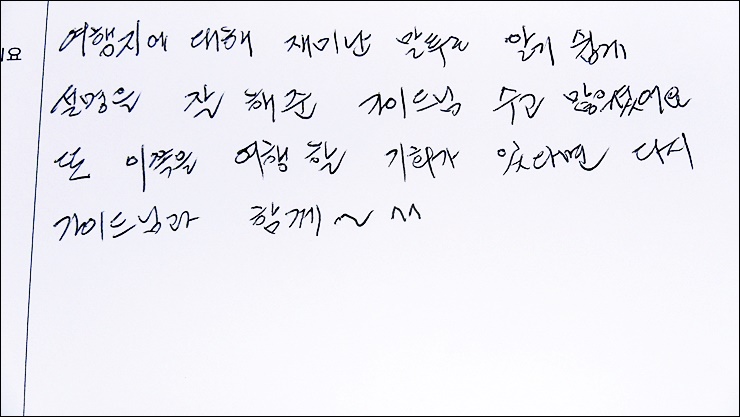 여행지에 대해 재미난 말투로 알기 쉽게
설명을 잘 해준 가이드님 수고 많으셨어요
또 이쪽을 여행 할 기회가 있다면 다시
가이드님과 함께~ ^^